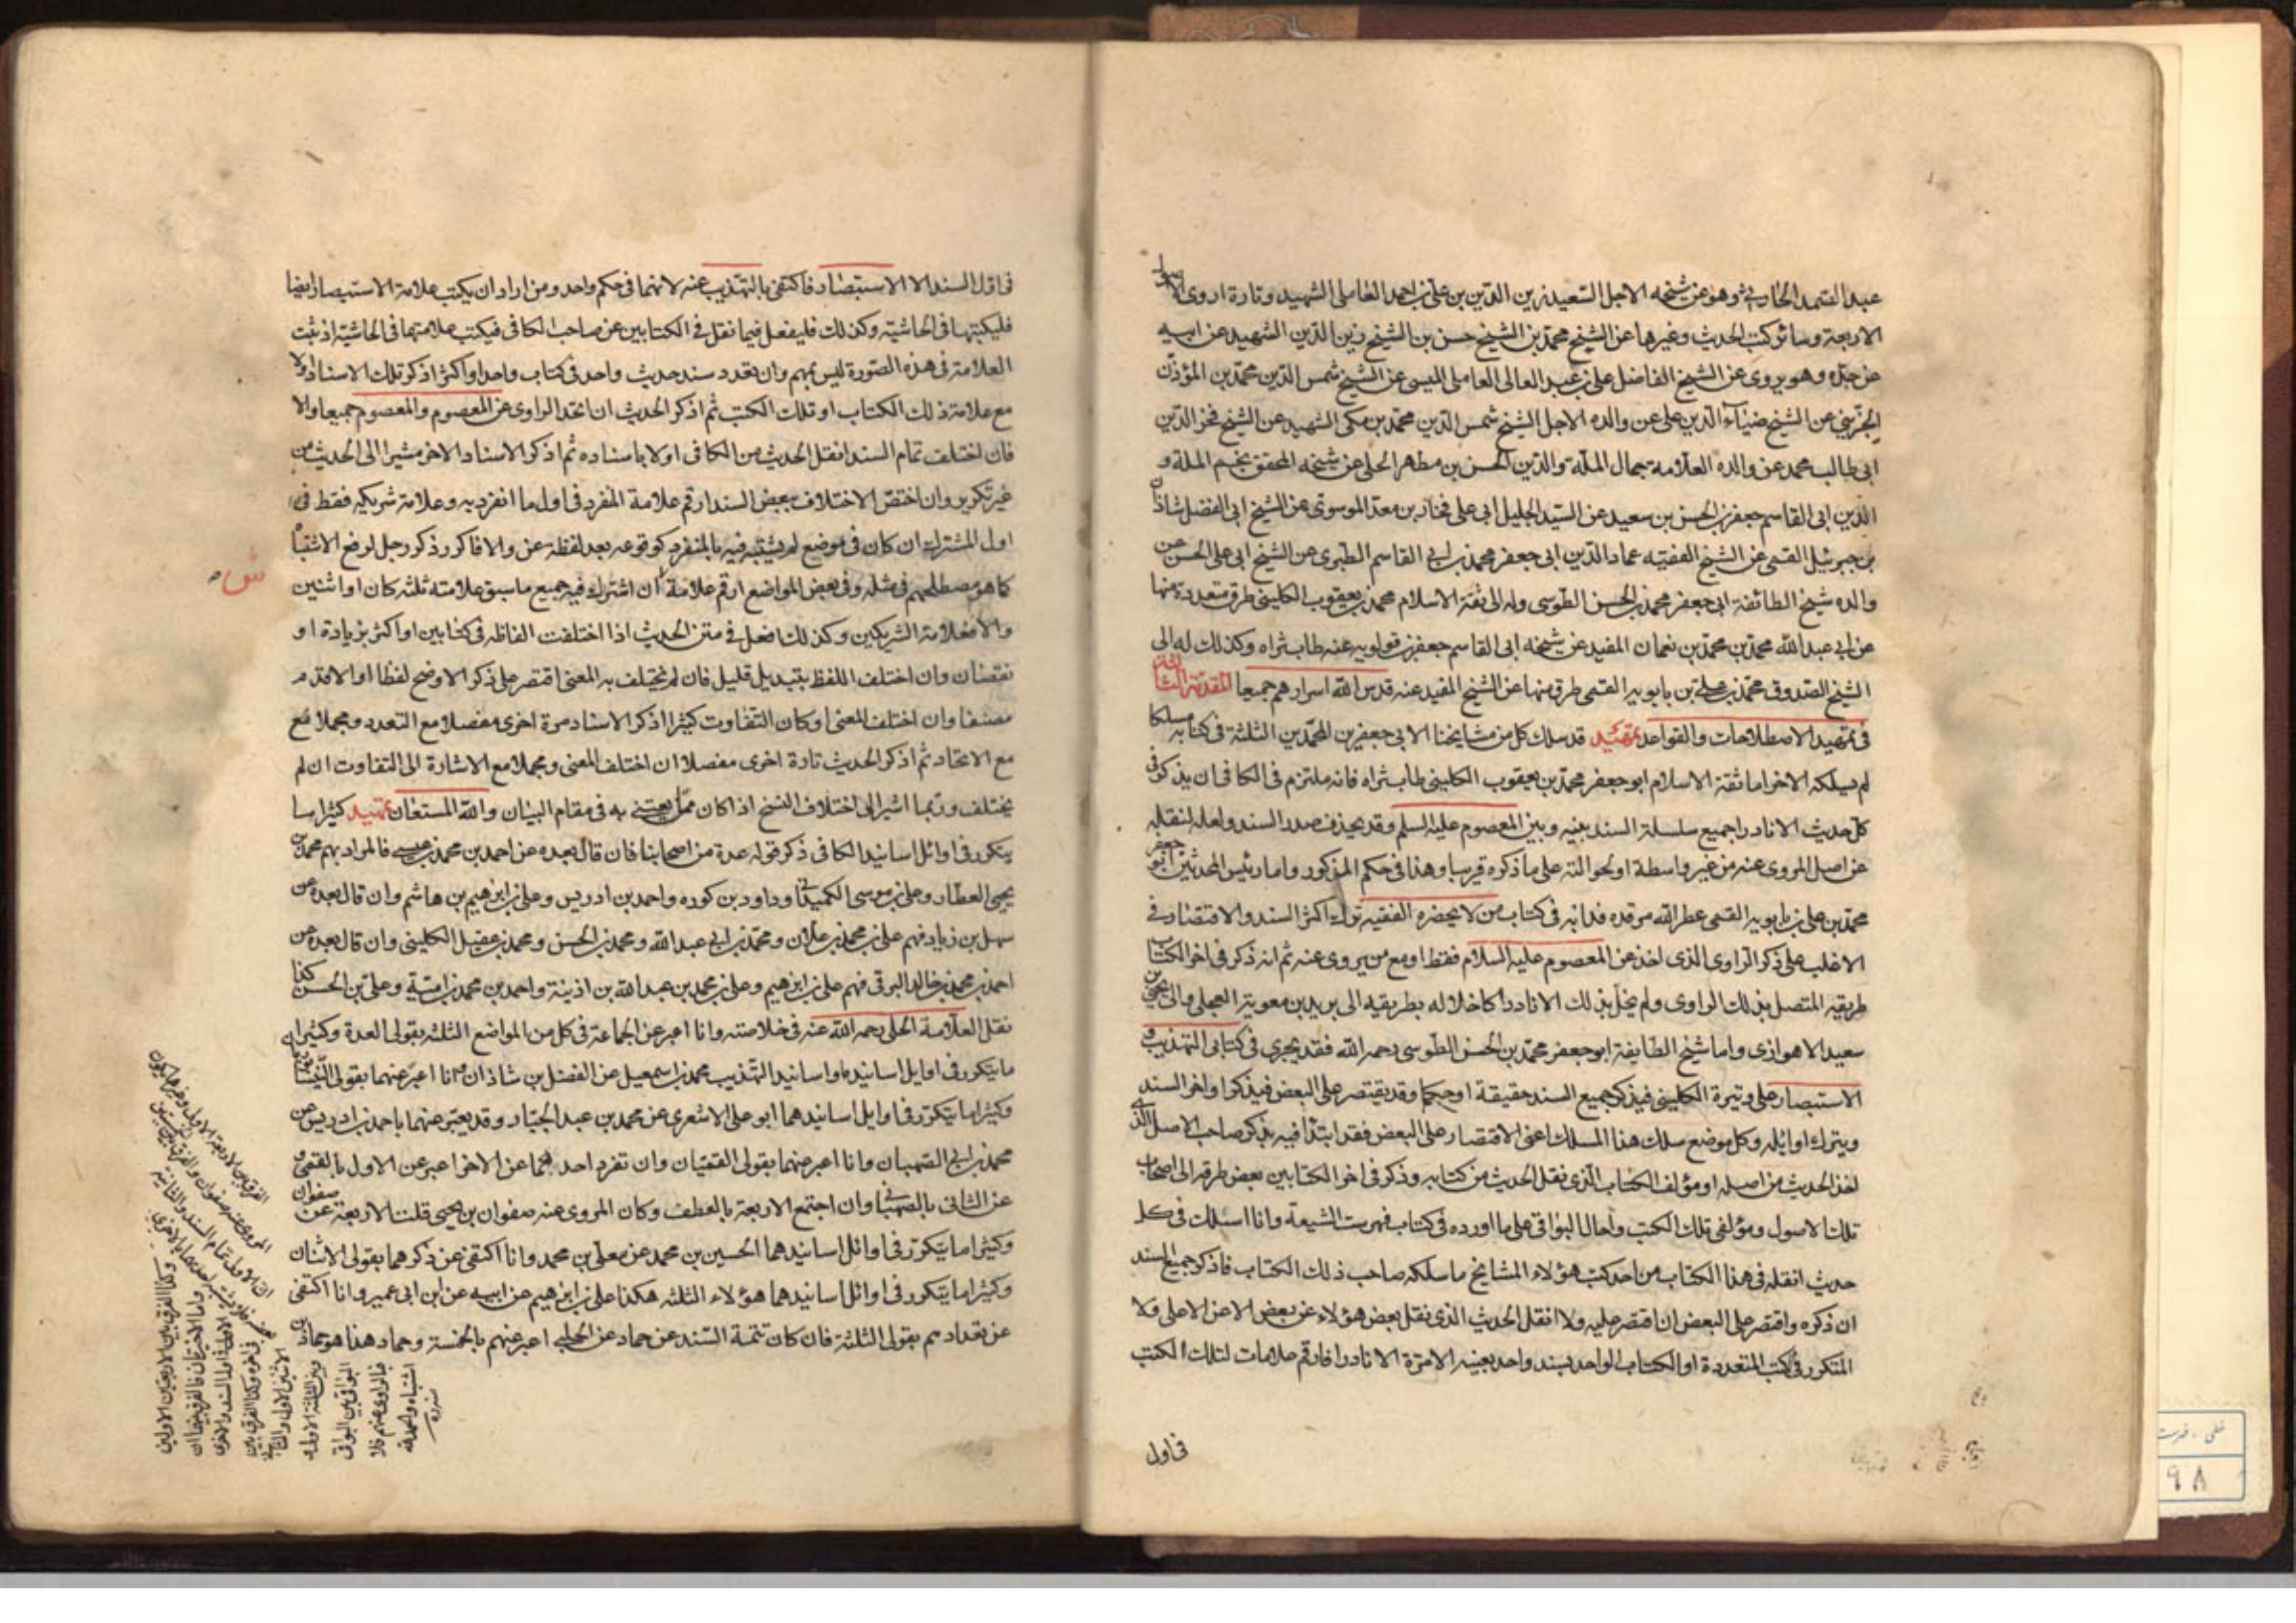 عبد الصمد الحارثي وهو عن شيخه الاجل السعيد زين الدين بن علي بن احمد العاملي الشهيد وتارة اروي
الاربعة وسائر كتب الحديث وغيرها عن الشيخ محمد بن الشيخ حسن بن الشيخ زين الدين الشهيد عن ابيه
عن جده وهو يروى عن الشيخ الفاضل علي بن عبد العالى العاملى الميسى عن الشيخ شمس الدين محمد بن المؤذن
الجزيني عن الشيخ ضياء الدين على عن والده الاجل الشيخ شمس الدين محمد بن مكى الشهيد عن الشيخ فخر الدين
ابى طالب محمد عن والده العلامة جمال الملة والدين الحسن بن مطهر الحلى عن شيخه المحقق نجم الملة و
الدين ابى القاسم جعفر بن الحسن بن سعيد عن السيد الجليل ابى على فخار بن معد الموسوى عن الشيخ ابى الفضل شاذان
بن جبرئيل القمى عن الشيخ الفقيه عماد الدين ابى جعفر محمد بن ابي القاسم الطبرى عن الشيخ ابى على الحسن عن
والده شيخ الطائفة ابى جعفر محمد بن الحسن الطوسى وله الى ثقة الاسلام محمد بن يعقوب الكلينى طرق متعددة منها
عن ابي عبد الله محمد بن محمد بن نعمان المفيد عن شيخه ابى القاسم جعفر بن قولويه عنه طاب ثراه وكذلك له الى
الشيخ الصدوق محمد بن على بن بابويه القمى طرق منها عن الشيخ المفيد عنه قدس الله اسرارهم جميعا المقدمة الثانية
فى تمهيد الاصطلاحات والقواعد تمهيد قد سلك كل من مشايخنا الابى جعفرين المحمدين الثلثة فى كتابه مسلكا
لم يسلكه الاخر اما ثقة الاسلام ابو جعفر محمد بن يعقوب الكلينى طاب ثراه فانه ملتزم فى الكافى ان يذكر فى
كل حديث الا نادرا جميع سلسلة السند بينه وبين المعصوم عليه السلم وقد يحذف صدر السند ولعله لنقله
عن اصل المروى عنه من غير واسطة او لحوالته على ما ذكره قريبا وهذا فى حكم المذكور واما رئيس المحدثين ابو جعفر
محمد بن على بن بابويه القمى عطر الله مرقده فدابه فى كتاب من لا يحضره الفقيه ترك اكثر السند والاقتصار فى
الاغلب على ذكر الراوى الذى اخذ عن المعصوم عليه السلام فقط او مع من يروى عنه ثم انه ذكر فى اخر الكتاب
طريقه المتصل بذلك الراوى ولم يخل بذلك الا نادرا كاخلاله بطريقيه الى بريد بن معوية العجلى والى يحيى بن
سعيد الاهوازى واما شيخ الطايفة ابو جعفر محمد بن الحسن الطوسى رحمه الله فقد يجرى فى كتابى التهذيب و
الاستبصار على وتيرة الكلينى فيذكر جميع السند حقيقة او حكما وقد يقتصر على البعض فيذكر اواخر السند
ويترك اوائله وكل موضع سلك هذا المسلك اعنى الاقتصار على البعض فقد ابتدا فيه بذكر صاحب الاصل الذى
اخذ الحديث من اصله او مؤلف الكتاب الذى نقل الحديث من كتابه وذكر فى اخر الكتابين بعض طرقه الى اصحاب
تلك الاصول ومؤلفى تلك الكتب واحال البواقى على ما اورده فى كتاب فهرست الشيعة وانا اسلك فى كل
حديث انقله فى هذا الكتاب من احد كتب هؤلاء المشايخ ما سلكه صاحب ذلك الكتاب فاذكر جميع السند
ان ذكره واقتصر على البعض ان اقتصر عليه ولا انقل الحديث الذى نقل بعض هؤلاء عن بعض الا عن الاعلى ولا
المتكرر فى الكتب المتعددة او الكتاب الواحد بسند واحد بعينه الا مرة الا نادرا فارقم علامات لتلك الكتب
فى اول
فى اول السند الا الاستبصار فاكتفى بالتهذيب عنه لانهما فى حكم واحد ومن اراد ان يكتب علامة الاستبصار ايضا
فليكتبها فى الحاشية وكذلك فليفعل فيما نقل فى الكتابين عن صاحب الكافى فيكتب علامتهما فى الحاشية اذ ثبت
العلامة فى هذه الصورة ليس بمهم وان تعدد سند حديث واحد فى كتاب واحد او اكثر اذكر تلك الاسناد اولا
مع علامة ذلك الكتاب او تلك الكتب ثم اذكر الحديث ان اتحد الراوى عن المعصوم والمعصوم جميعا والا
فان اختلف تمام السند انقل الحديث من الكافى اولا باسناده ثم اذكر الاسناد الاخر مشيرا الى الحديث من
غير تكرير وان اختص الاختلاف ببعض السند ارقم علامة المنفرد فى اول ما انفرد به وعلامة شريكه فقط فى
اول المشترك ان كان فى موضع لم يشتبه فيه بالمنفرد كوقوعه بعد لفظة عن والا فاكرر ذكر رجل لرفع الاشتباه
كما هو مصطلحهم فى مثله وفى بعض المواضع ارقم علامة ش ان اشترك فيه جميع ما سبق علامته ثلثة كان او اثنين
ش
والا فعلامة الشريكين وكذلك افعل فى متن الحديث اذا اختلفت الفاظه فى كتابين او اكثر بزيادة او
نقصان وان اختلف اللفظ بتبديل قليل فان لم يختلف به المعنى اقتصر على ذكر الاوضح لفظا او الاقدم
مصنفا وان اختلف المعنى او كان التفاوت كثيرا اذكر الاسناد مرة اخرى مفصلا مع التعدد ومجملا مع
مع الاتحاد ثم اذكر الحديث تارة اخرى مفصلا ان اختلف المعنى ومجملا مع الاشارة الى التفاوت ان لم
يختلف وربما اشير الى اختلاف النسخ اذا كان مما يعتنى به فى مقام البيان والله المستعان تمهيد كثيرا ما
يتكرر فى اوائل اسانيد الكافى ذكر قوله عدة من اصحابنا فان قال بعده عن احمد بن محمد بن عيسى فالمراد بهم محمد بن
يحيى العطار وعلى بن موسى الكمیدانى وداود بن كوره واحمد بن ادريس وعلى بن ابرهيم بن هاشم وان قال بعده عن
سهل بن زياد فهم على بن محمد بن علان ومحمد بن ابي عبد الله ومحمد بن الحسن ومحمد بن عقيل الكلينى وان قال بعده عن
احمد بن محمد بن خالد البرقى فهم على بن ابرهيم وعلى بن محمد بن عبد الله بن اذينة واحمد بن محمد بن امية وعلى بن الحسن كذا
نقل العلامة الحلى رحمه الله عنه فى خلاصته وانا اعبر عن الجماعة فى كل من المواضع الثلثة بقولى العدة وكثيرا
ما يتكرر فى اوايل اسانيده واسانيد التهذيب محمد بن اسمعيل عن الفضل بن شاذان وانا اعبر عنهما بقولى النيسابوريان
وكثيرا ما يتكرر فى اوايل اسانيدهما ابو على الاشعرى عن محمد بن عبد الجبار وقد يعبر عنهما باحمد بن ادريس عن
محمد بن ابي الصهبان وانا اعبر عنهما بقولى القميان وان تفرد احدهما عن الاخر اعبر عن الاول بالقمى و
عن الثانى بالصهبانى وان اجتمع الاربعة بالعطف وكان المروى عنه صفوان بن يحيى قلت الاربعة عن صفوان
وكثيرا ما يتكرر فى اوائل اسانيدهما الحسين بن محمد عن معلى بن محمد وانا اكتفى عن ذكرهما بقولى الاثنان
وكثيرا ما يتكرر فى اوائل اسانيدهما هؤلاء الثلثة هكذا على بن ابرهيم عن ابيه عن ابن ابى عمير وانا اكتفى
عن تعدادهم بقولى الثلثة فان كان تتمة السند عن حماد عن الحلبى اعبر عنهم بالخمسة وحماد هذا هو حماد بن
٩٨